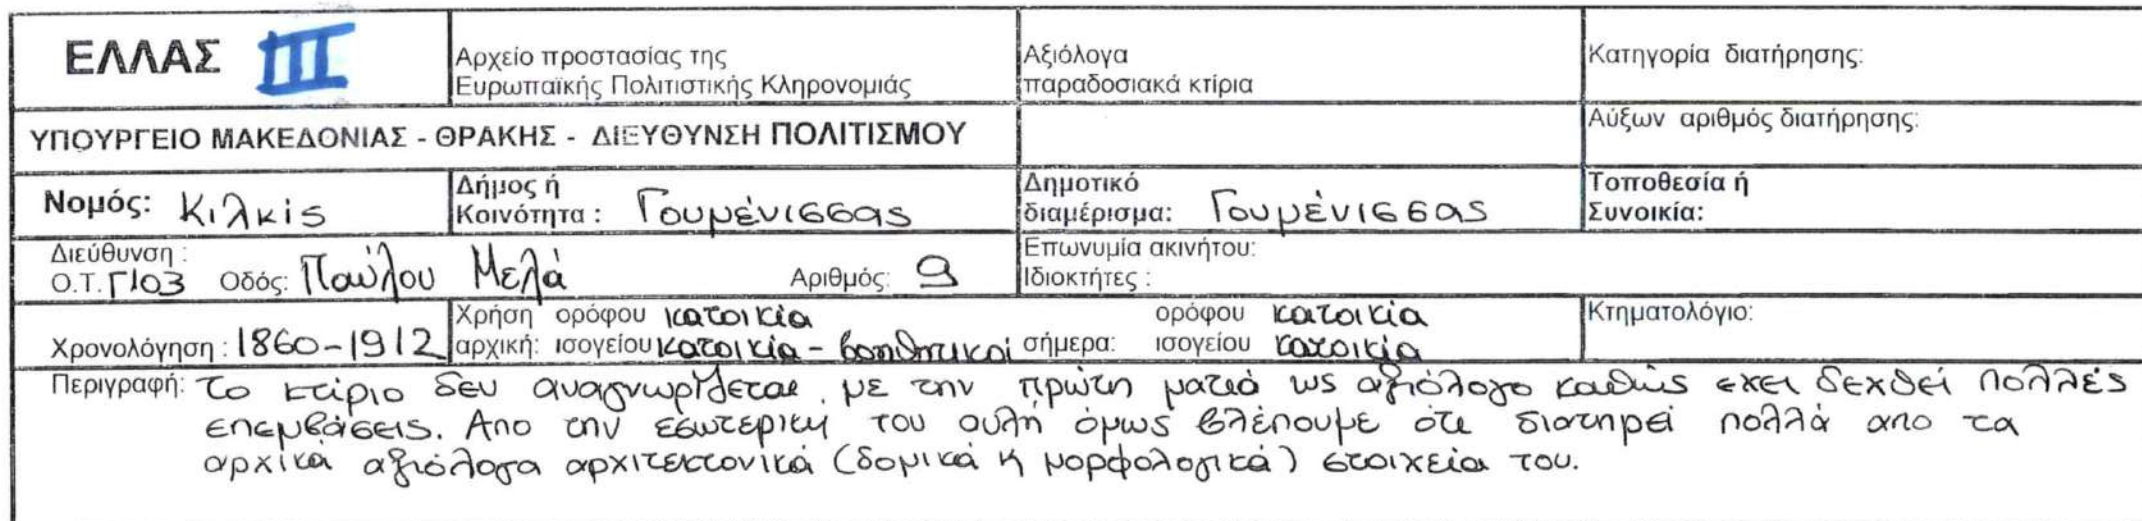 ΕΛΛΑΣ III
Αρχείο προστασίας της
Ευρωπαϊκής Πολιτιστικής Κληρονομιάς
Αξιόλογα
παραδοσιακά κτίρια
Κατηγορία διατήρησης:
ΥΠΟΥΡΓΕΙΟ ΜΑΚΕΔΟΝΙΑΣ - ΘΡΑΚΗΣ - ΔΙΕΥΘΥΝΣΗ ΠΟΛΙΤΙΣΜΟΥ
Αύξων αριθμός διατήρησης:
Νομός: Κιλκίς
Δήμος ή
Κοινότητα : Γουμένισσας
Δημοτικό
διαμέρισμα: Γουμένισσας
Τοποθεσία ή
Συνοικία:
Διεύθυνση :
Ο.Τ. Γ103 Οδός: Παύλου Μελά Αριθμός: 9
Επωνυμία ακινήτου:
Ιδιοκτήτες :
Χρονολόγηση : 1860-1912
Χρήση ορόφου κατοικία
αρχική: ισογείου κατοικία - βοηθητικοί
ορόφου κατοικία
σήμερα: ισογείου κατοικία
Κτηματολόγιο:
Περιγραφή: το κτίριο δεν αναγνωρίζεται με την πρώτη ματιά ως αξιόλογο καθώς εχει δεχθεί πολλές
επεμβάσεις. Απο την εσωτερική του αυλή όμως βλέπουμε ότι διατηρεί πολλά απο τα
αρχικά αξιόλογα αρχιτεκτονικά (δομικά κ μορφολογικά) στοιχεία του.